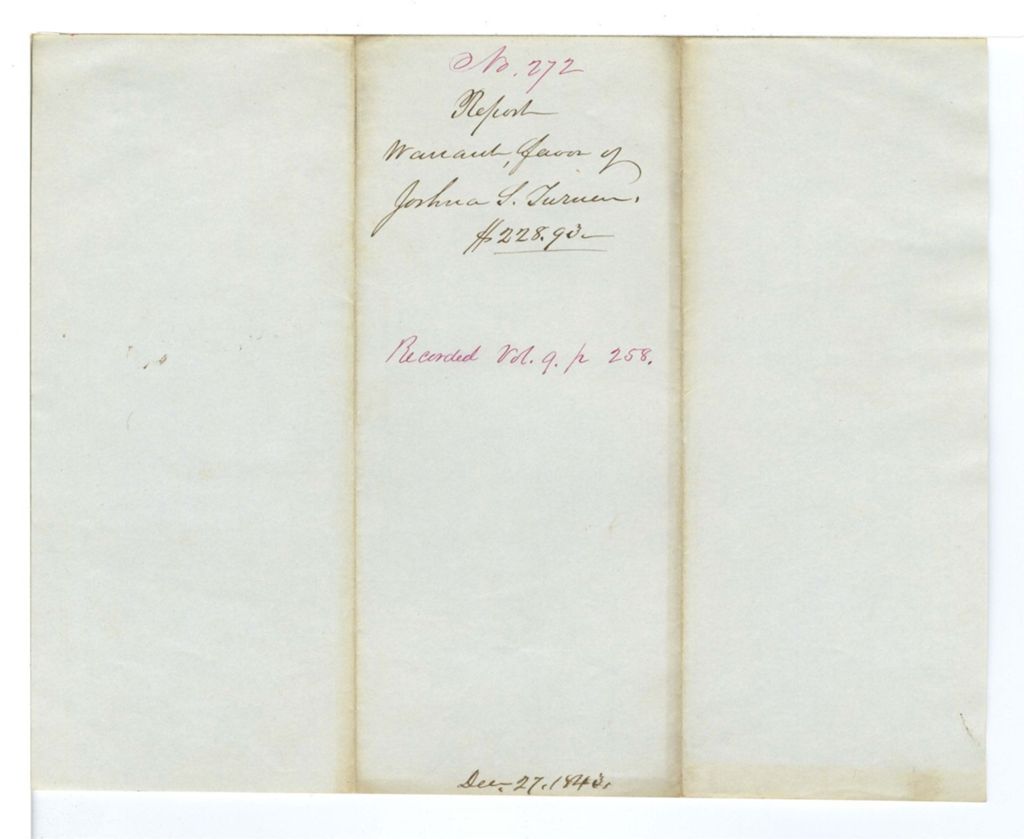 No. 272
Report
Warrant, favor of
Joshua S. Turner.
$228.93
Recorded Vol. 9. p 258.
Dec. 27. 1843.